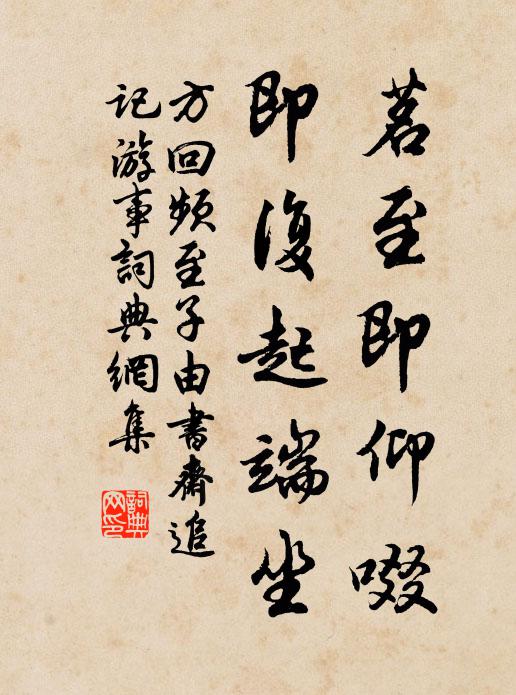 茗至即仰啜
即復起端坐
方回頻至子由書齋追
記游事詞典網集
詞典
网印